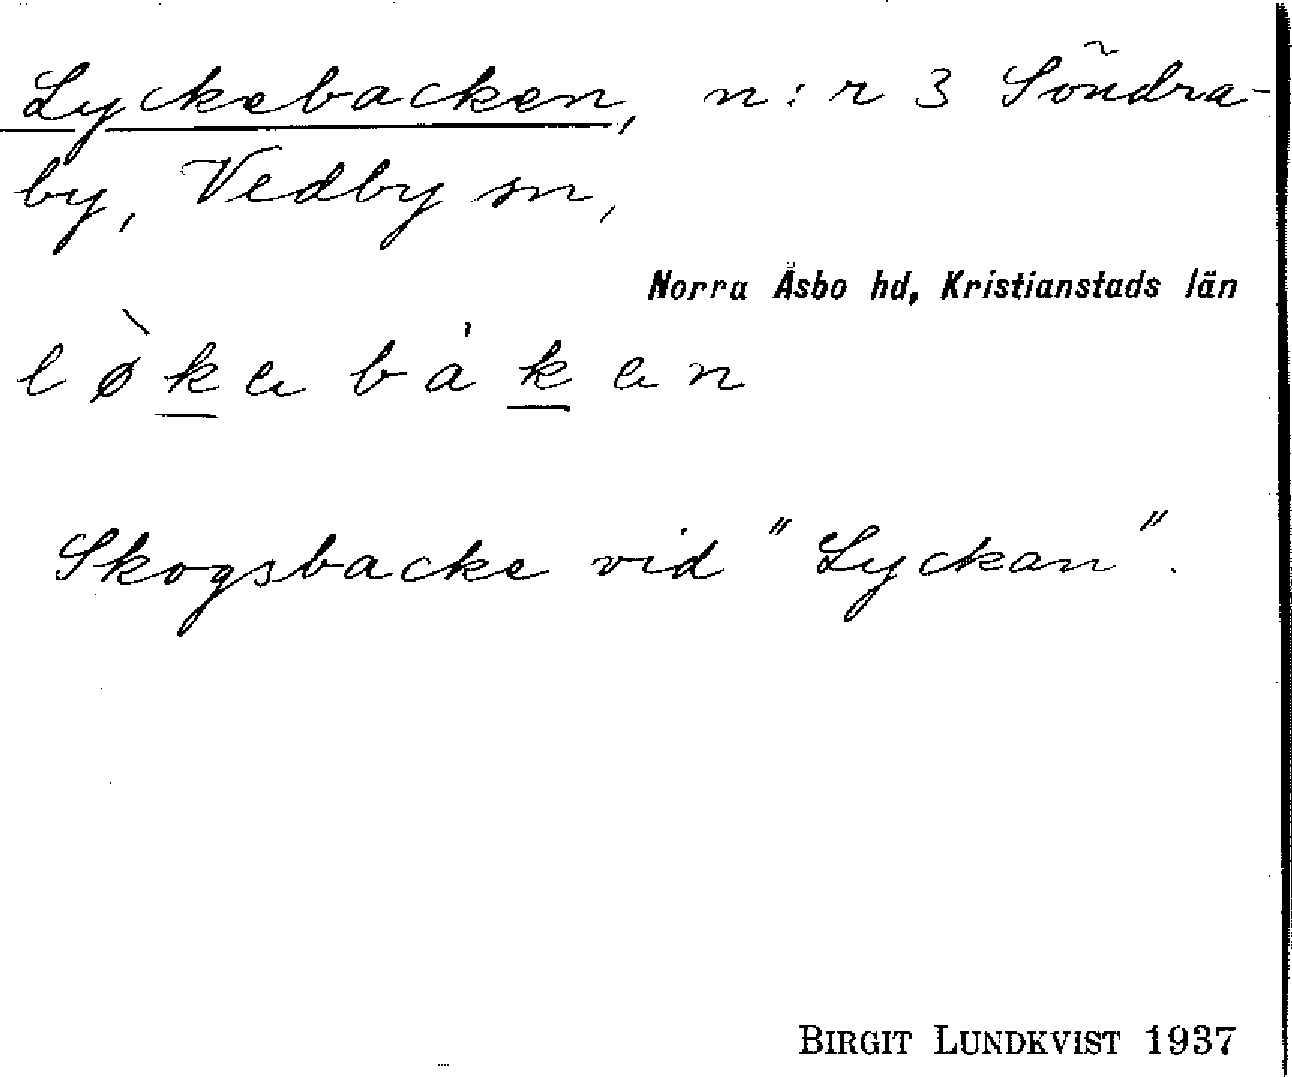 Lyckebacken, n:r 3 Söndra-
by, Vedby sn,
Norra Åsbo hd, Kristianstads län
lø̀kabákan
Skogsbacke vid "Lyckan".
BIRGIT LUNDKVIST 1937